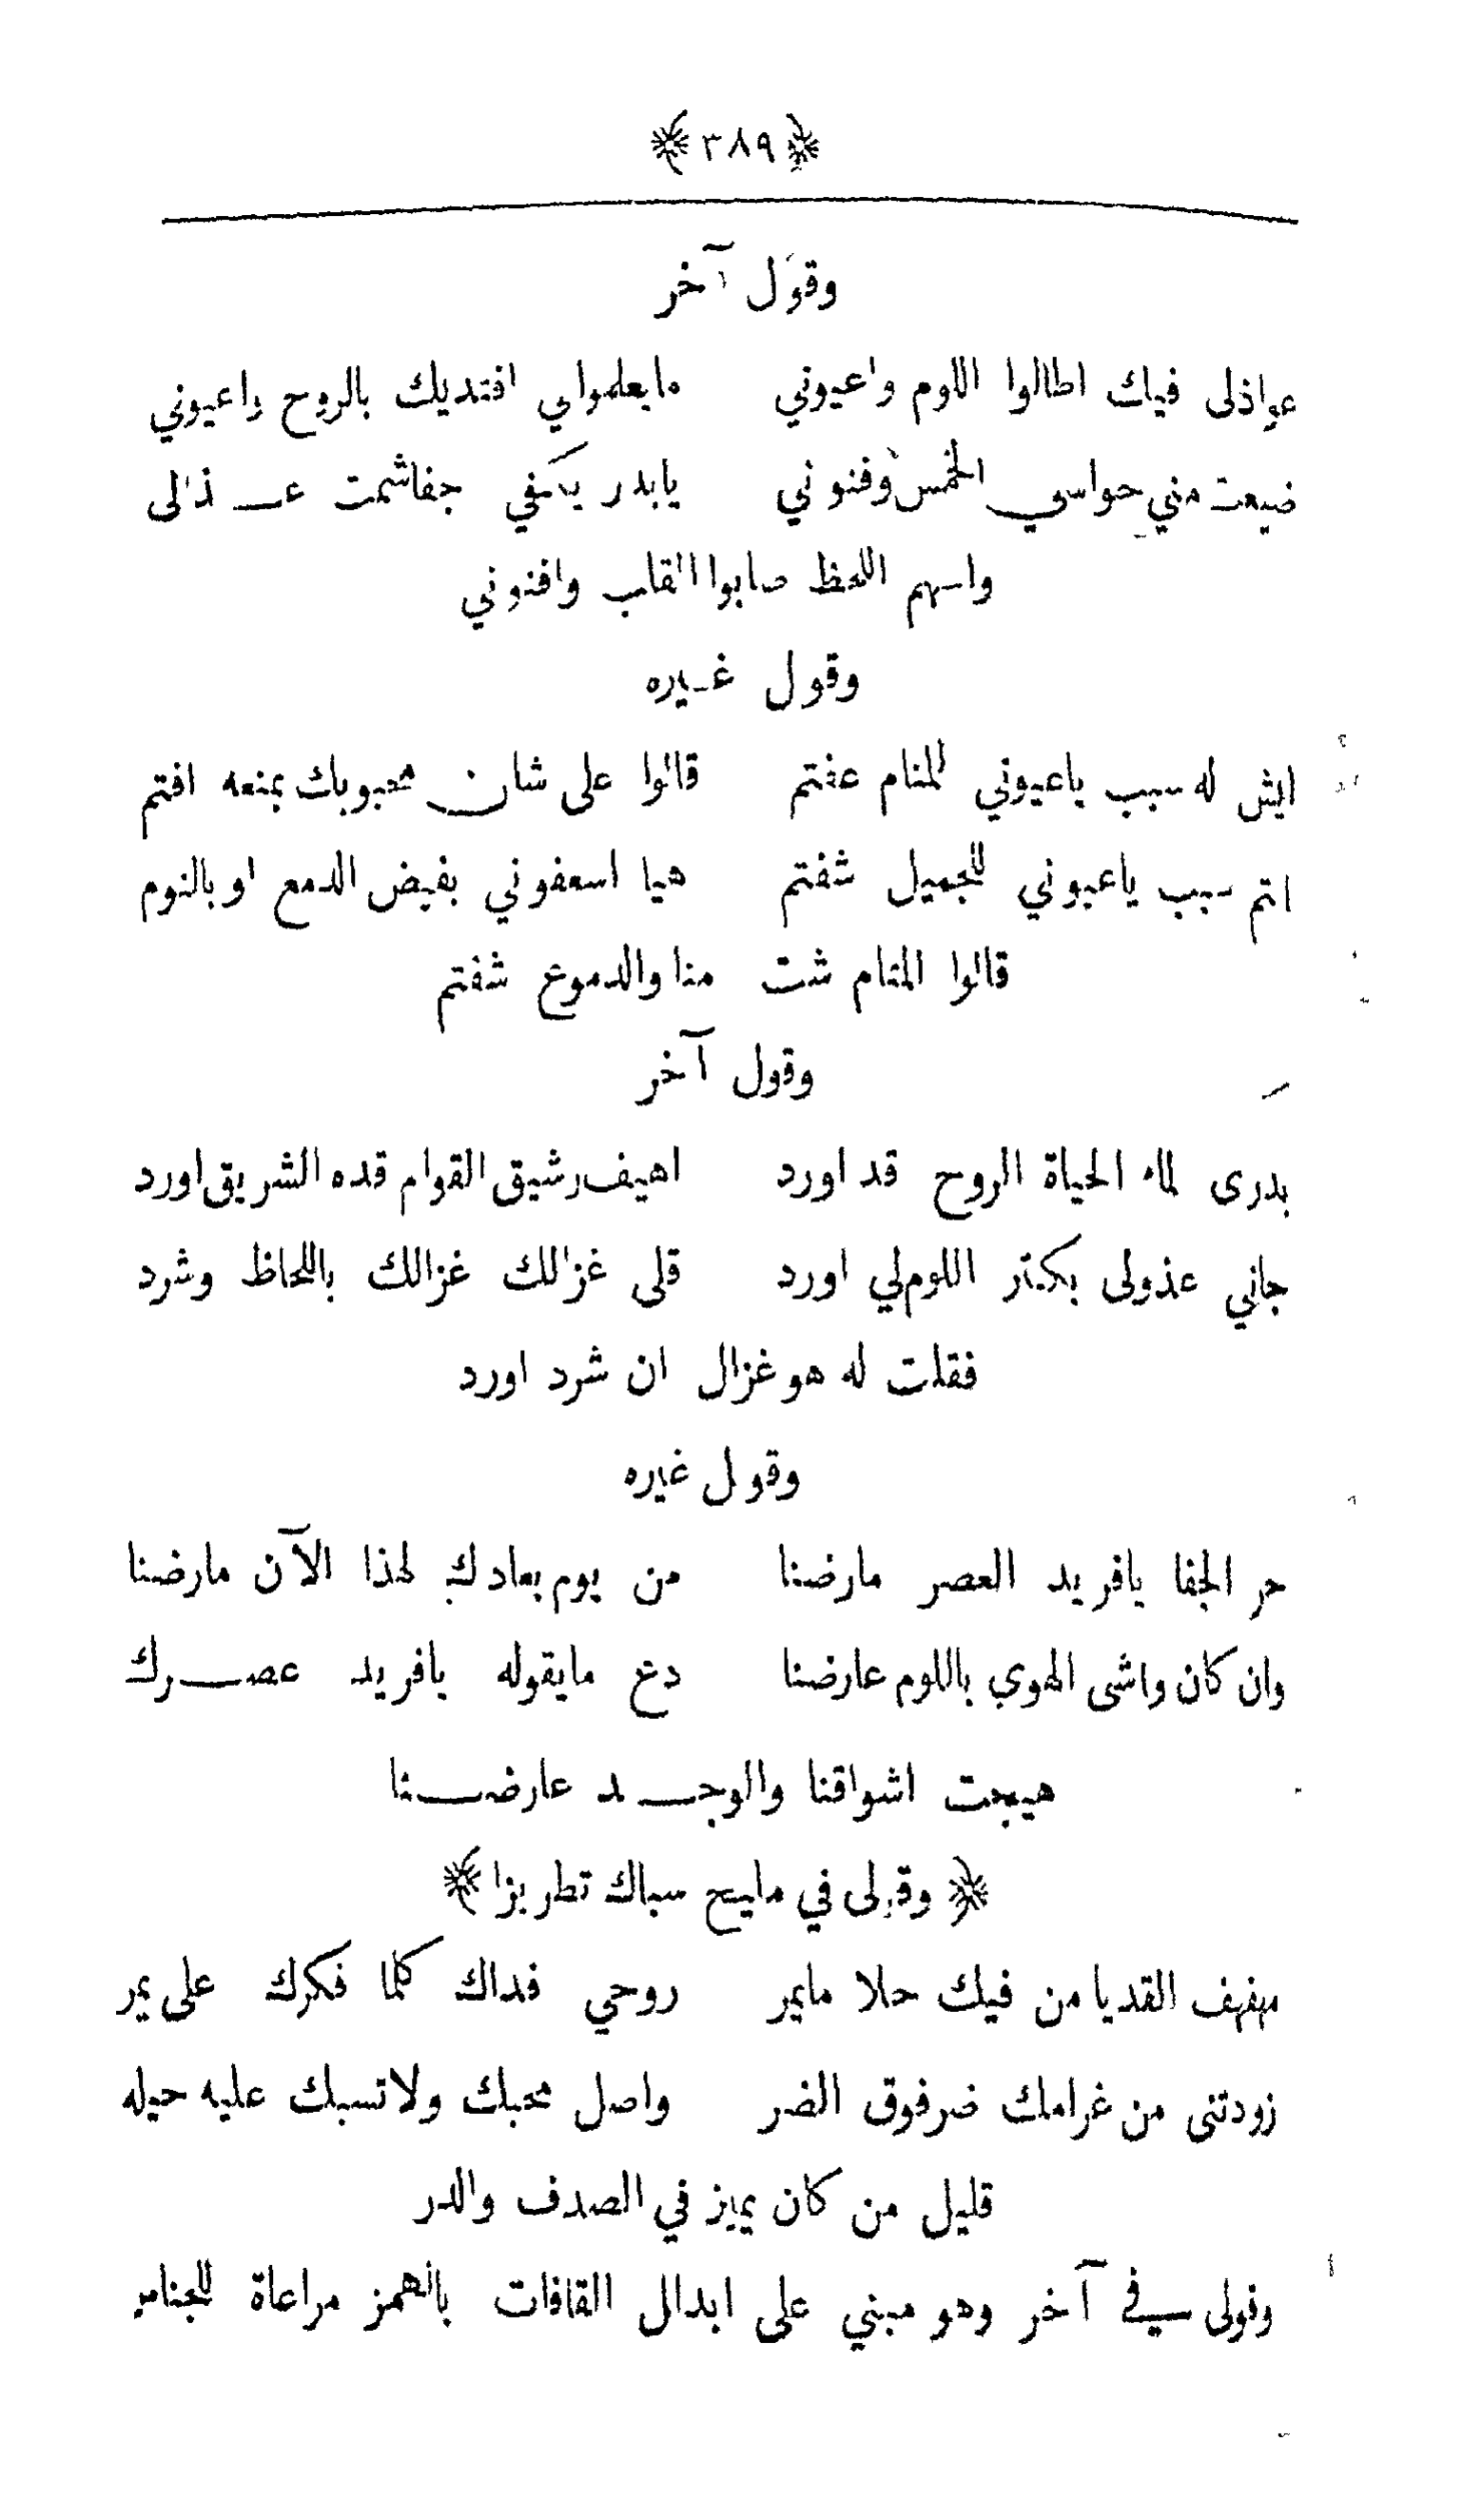 ﴿٣٨٩﴾
وقول آخر
عواذلى فيك اطالوا اللوم واعيوني مايعلموا بي افتديك بالروح واعيوني
ضيعت مني حواسي الخمس وفنوني يابدر يكفي جفاشمت عـــذالى
واسهم اللحظ صابوا القلب وافنوني
وقول غـيره
ايش له سبب ياعيوني للمنام عفتم قالوا على شان محبوبك بمنعه افتم
انتم سبب ياعيوني للجميل شفتم هيا اسعفوني بفيض الدمع او بالنوم
قالوا المنام شت منا والدموع شفتم
وقول آخر
بدرى لماء الحياة الروح قد اورد اهيف رشيق القوام قده الشريق اورد
جاني عذولى بكتر اللوم لي اورد قلى غزالك غزالك باللحاظ وشرد
فقلت له هو غزال ان شرد اورد
وقول غيره
حر الجفا يافريد العصر مارضنا من يوم بعادك لهذا الآن مارضنا
وان كان واشى الهوي باللوم عارضنا دع مايقوله يافريد عصـــرك
هيجت اشواقنا والوجـــد عارضـــنا
﴿وقولى في مليح سباك تطريزا﴾
مهفهف القد يا من فيك حلا مايمر روحي فداك كلما فكرك على يمر
زودتنى من غرامك ضر فوق الضر واصل محبك ولاتسبك عليه حيله
قليل من كان يميز في الصدف والدر
وقولى في آخر وهو مبني على ابدال القافات بالهمز مراعاة للجناس